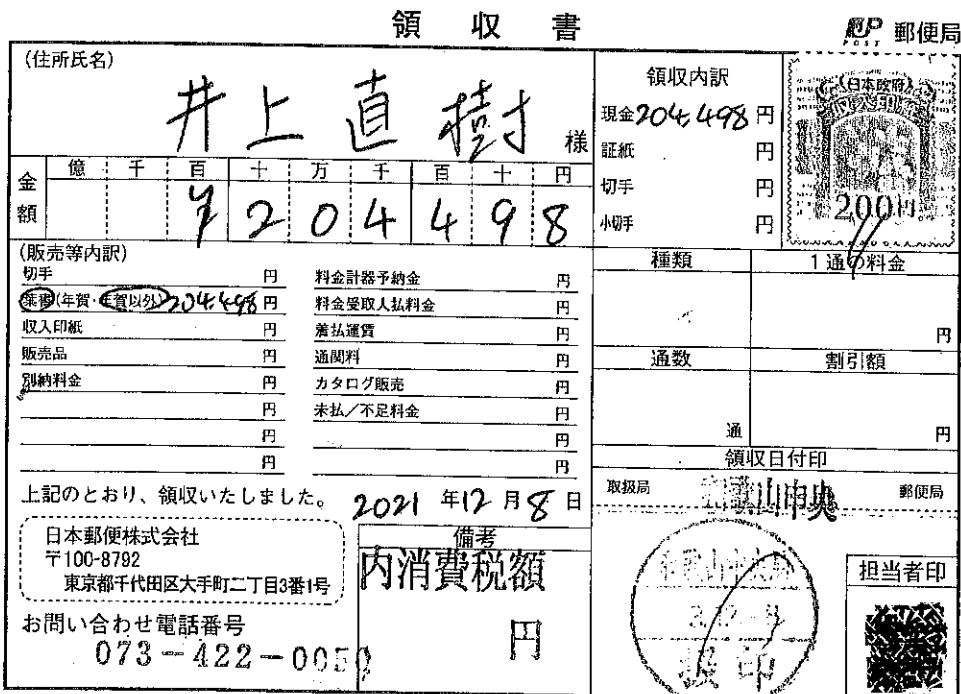 領収書
JP POST 郵便局
(住所氏名)
井上直樹 様
金額
億 千 百 十 万 千 百 十 円
¥204498
領収内訳
現金204,498円
証紙 円
切手 円
小切手 円
日本政府
200円
(販売等内訳)
切手 円
葉書(年賀・年賀以外)204,498円
収入印紙 円
販売品 円
別納料金 円
円
円
円
料金計器予納金 円
料金受取人払料金 円
着払運賃 円
通関料 円
カタログ販売 円
未払/不足料金 円
円
円
種類 1通の料金
円
通数 割引額
通 円
上記のとおり、領収いたしました。 2021年12月8日
日本郵便株式会社
〒100-8792
東京都千代田区大手町二丁目3番1号
お問い合わせ電話番号
073-422-0050
備考
内消費税額
円
領収日付印
取扱局 和歌山中央 郵便局
3.12.-8
担当者印